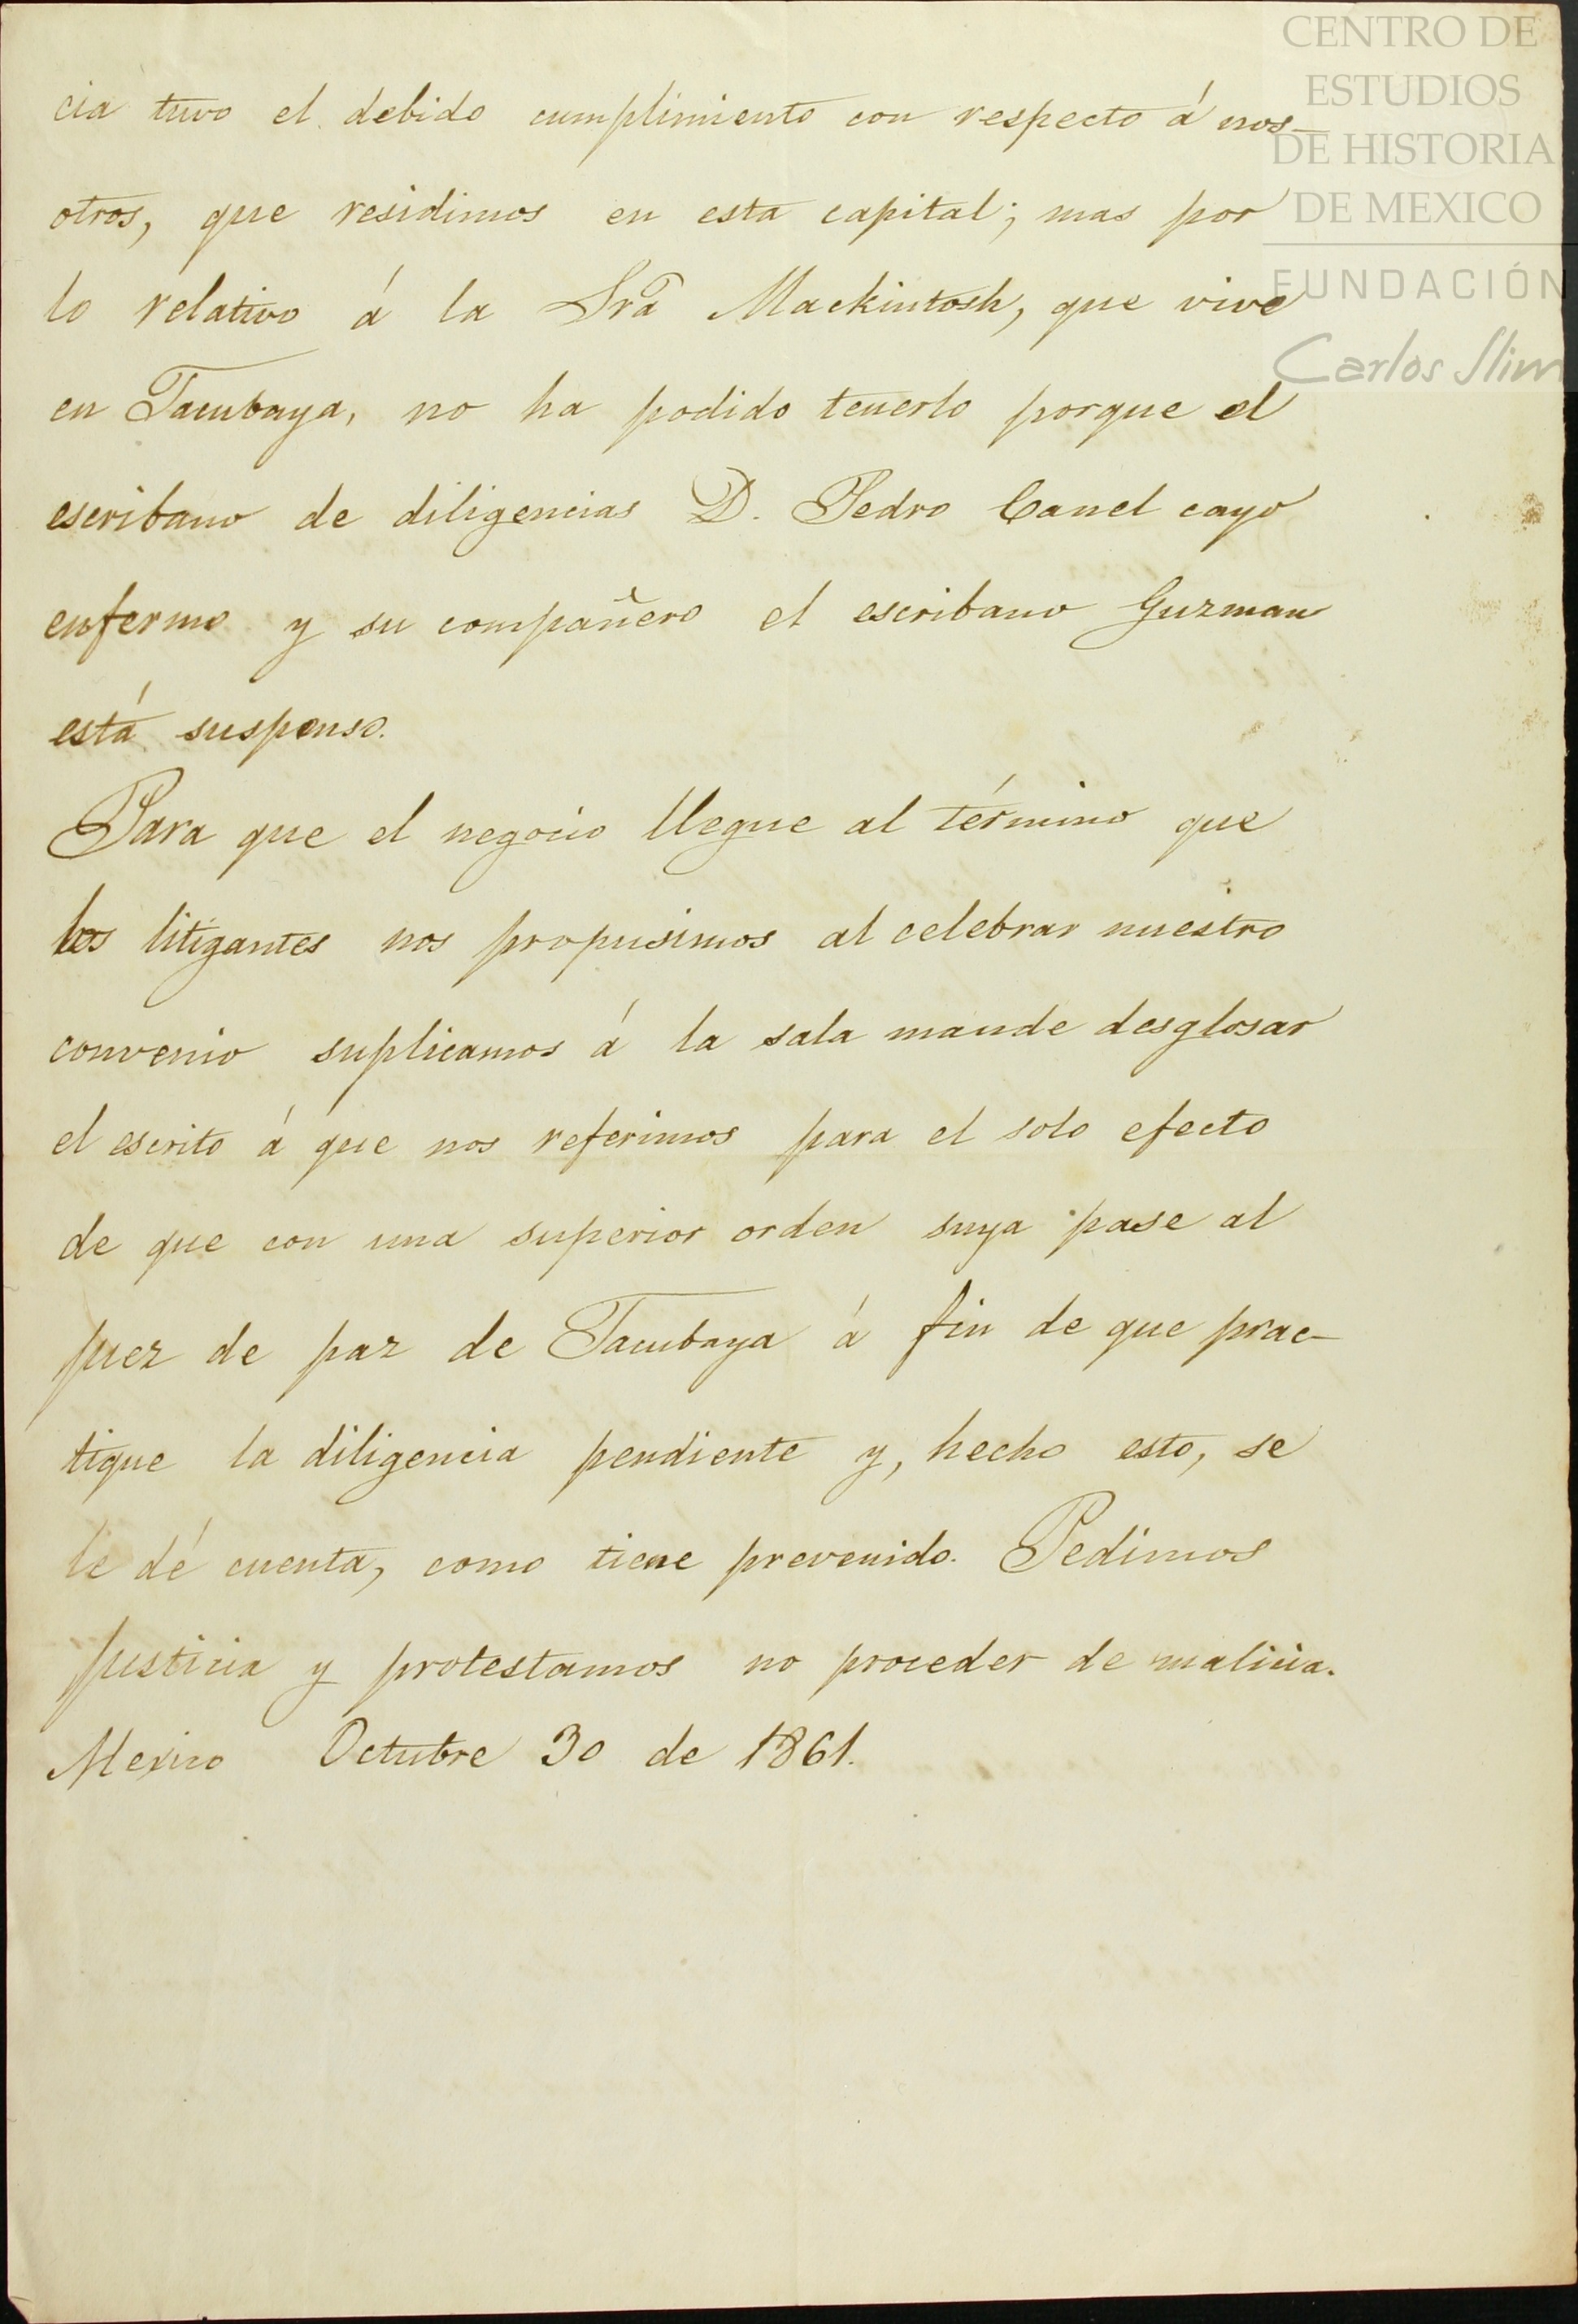 CENTRO DE
ESTUDIOS
DE HISTORIA
DE MEXICO
FUNDACIÓN
Carlos Slim
cia tuvo el debido cumplimiento con respecto á nos-
otros, que residimos en esta capital; mas por
lo relativo á la Sra Mackintosh, que vive
en Tacubaya, no ha podido tenerlo porque el
escribano de diligencias D. Pedro Canel cayo
enfermo y su compañero el escribano Guzman
está suspenso.
Para que el negocio llegue al término que
los litigantes nos propusimos al celebrar nuestro
convenio suplicamos á la sala mande desglosar
el escrito á que nos referimos para el solo efecto
de que con una superior orden suya pase al
juez de paz de Tacubaya á fin de que prac-
tique la diligencia pendiente y, hecho esto, se
le dé cuenta, como tiene prevenido. Pedimos
justicia y protestamos no proceder de malicia.
Mexico Octubre 30 de 1861.